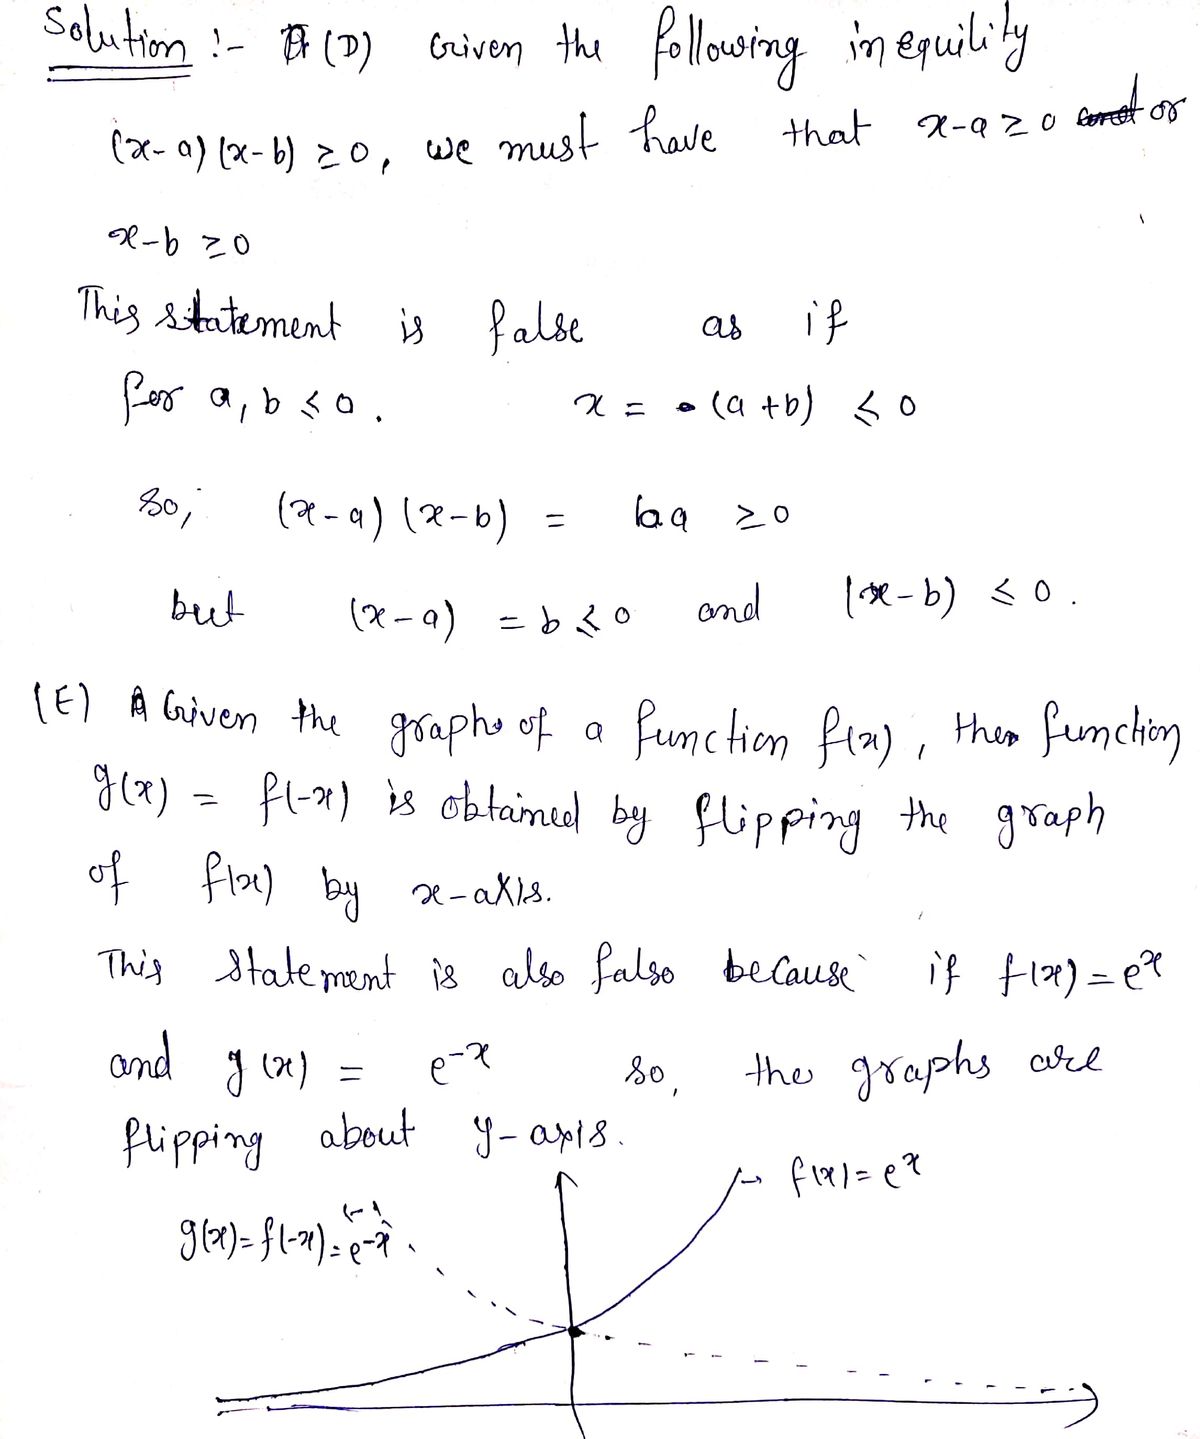 Solution :- (D) Given the following inequility
(x-a) (x-b) ≥ 0, we must have that x-a ≥ 0 or
x-b ≥ 0
This statement is false as if
for a, b ≤ 0. x = (a+b) ≤ 0
so, (x-a) (x-b) = ba ≥ 0
but (x-a) = b ≤ 0 and (x-b) ≤ 0.
(E) Given the graph of a function f(x), the function
g(x) = f(-x) is obtained by flipping the graph
of f(x) by x-axis.
This statement is also false because if f(x) = e^x
and g(x) = e^-x so, the graphs are
flipping about y-axis.
→ f(x) = e^x
g(x) = f(-x) = e^-x